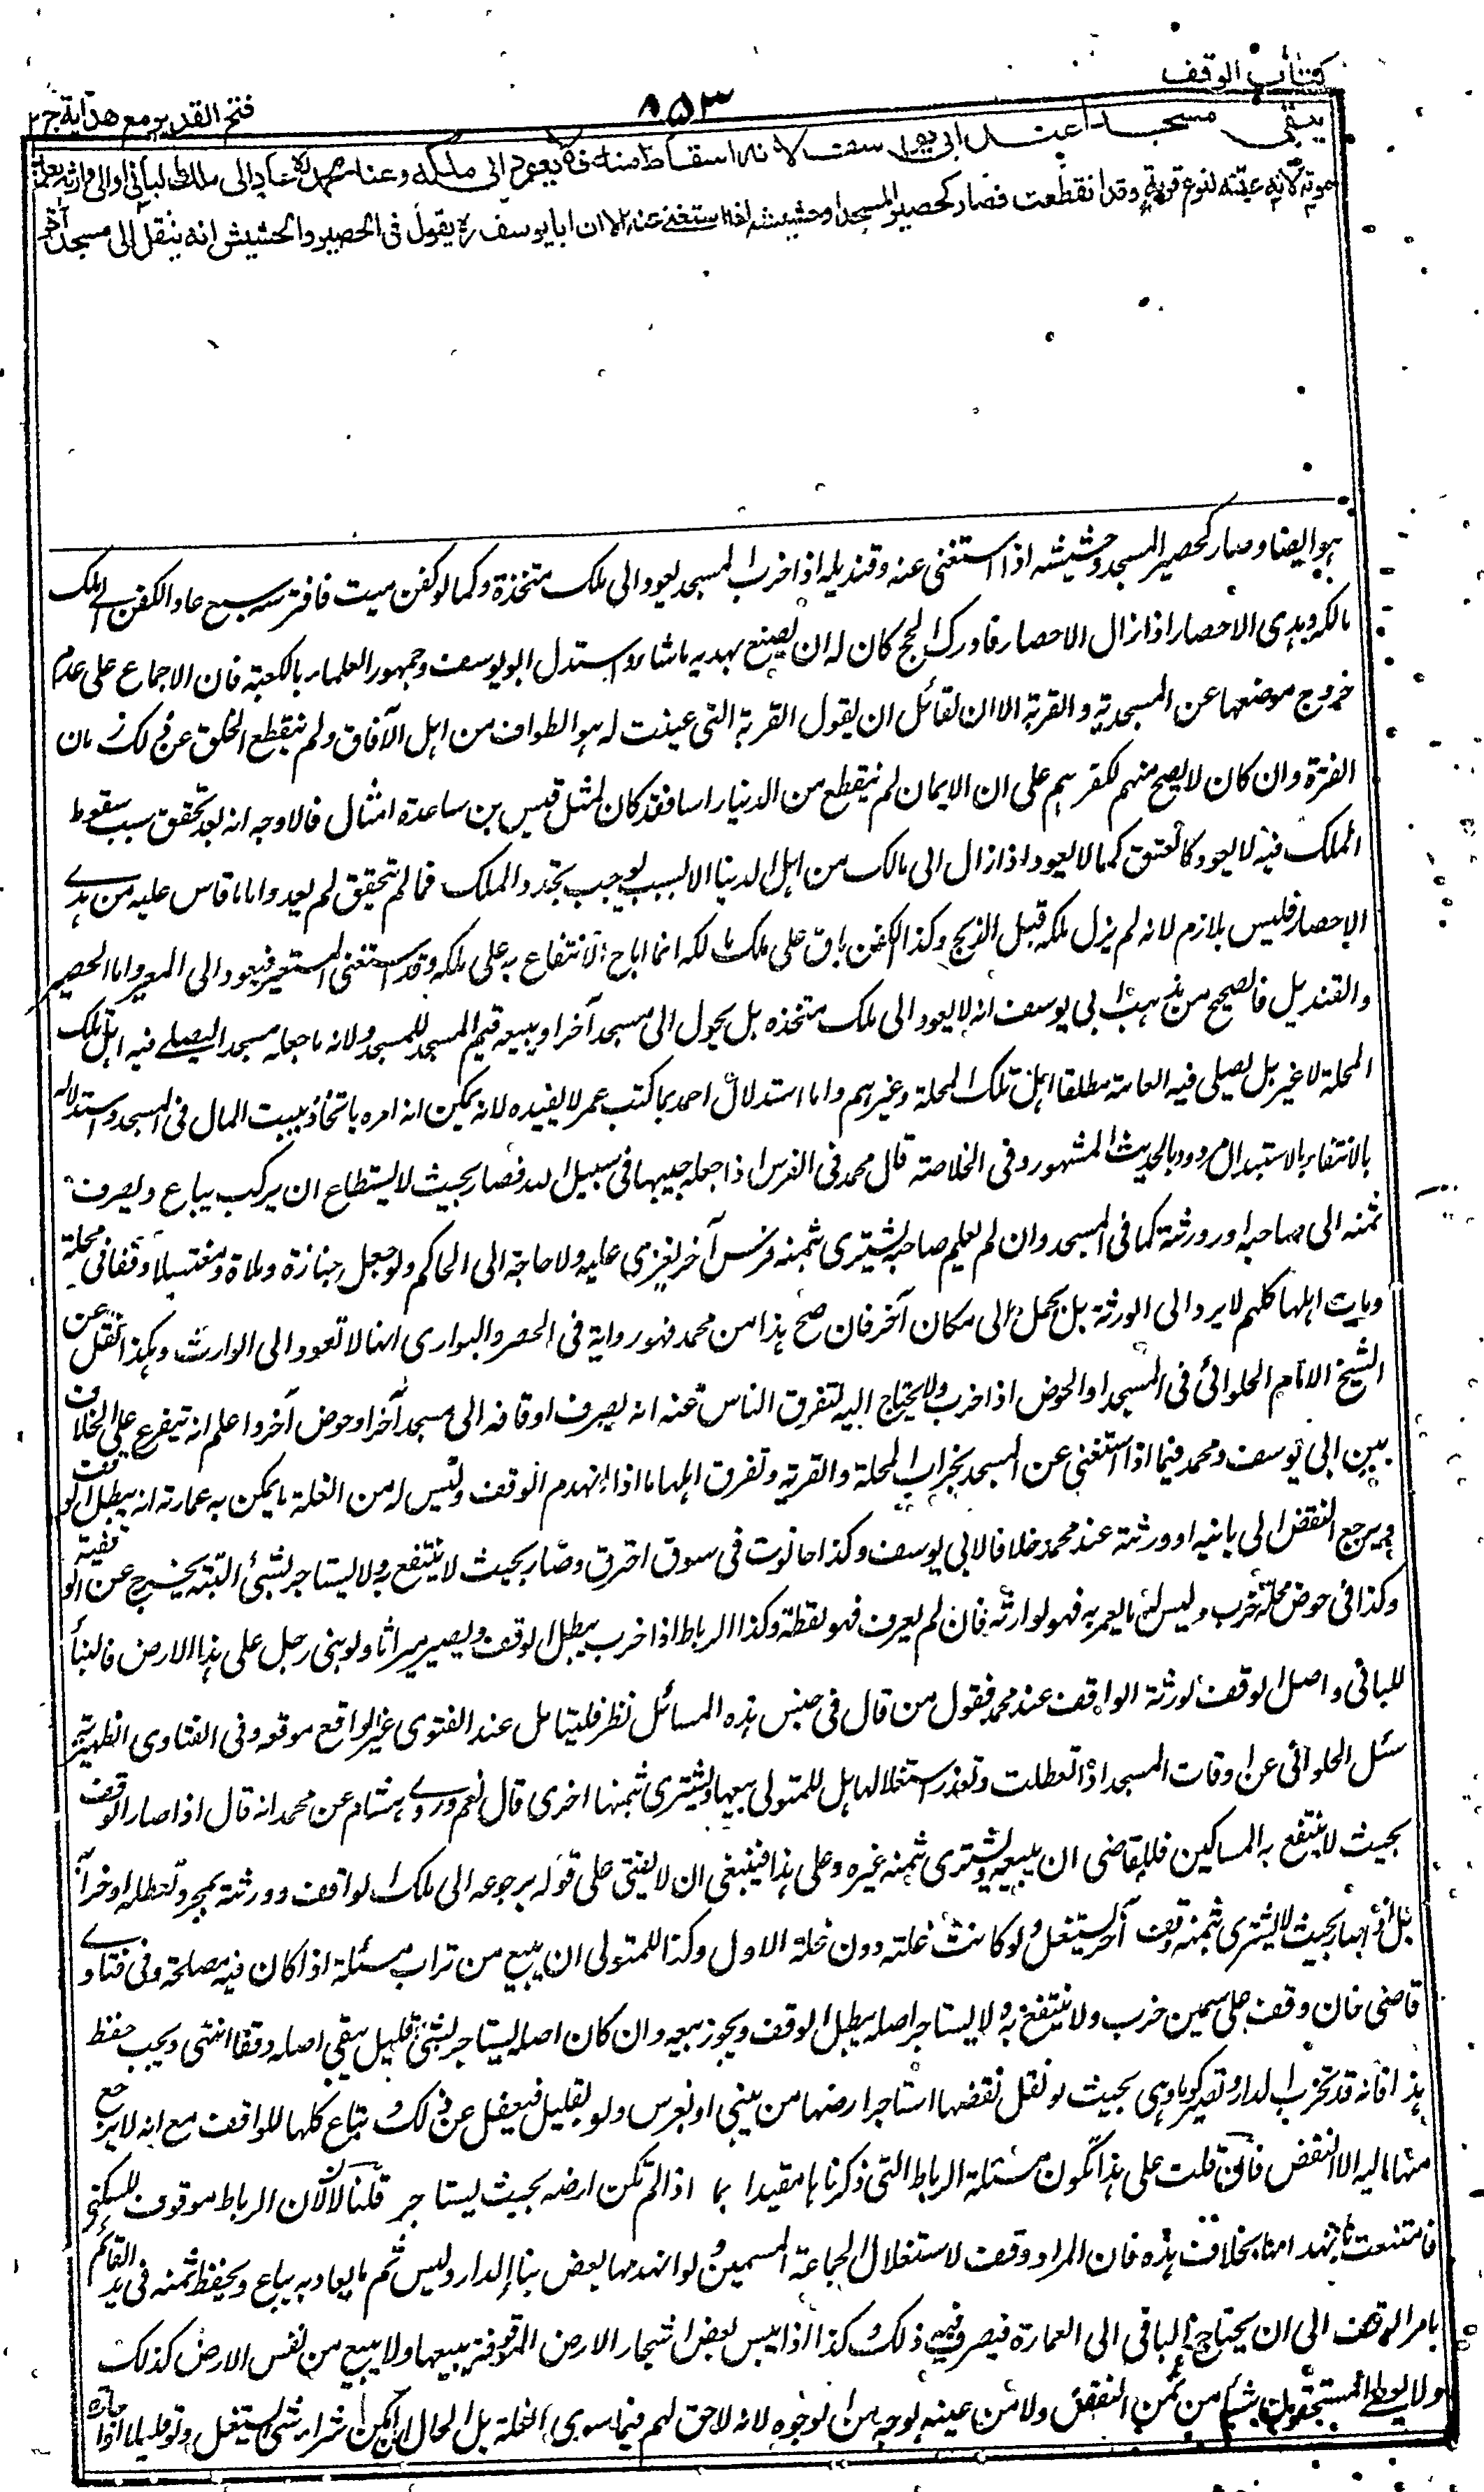 كتاب الوقف
٨٥٣
فتح القدير مع هداية ج ٢
يبقى مسجدا عند ابى يوسف لانه اسقاط منه فلا يعود الى ملكه وعند محمد يعود الى ملك البانى او الى وارثه بعد
موته لانه عينه لنوع قربة وقد انقطعت فصار كحصير المسجد وحشيشه اذا استغنى عنه الا ان ابا يوسف رح يقول فى الحصير والحشيش انه ينقل الى مسجد آخر
هو ايضا وصار كحصير المسجد وحشيشه اذا استغنى عنه وقنديله اذا خرب المسجد يعود الى ملك متخذه وكما لو كفن ميت فافترسه سبع عاد الكفن الى ملك
مالكه وبهدى الاحصار اذا زال الاحصار فادرك الحج كان له ان يصنع بهديه ما شاء واستدل ابو يوسف وجمهور العلماء بالكعبة فان الاجماع على عدم
خروج موضعها عن المسجدية والقربة الا ان لقائل ان يقول القربة التى عينت له هو الطواف من اهل الآفاق ولم ينقطع الخلق عن ذلك زمان
الفترة وان كان لا يصح منهم لكفرهم على ان الايمان لم ينقطع من الدنيا راسا فقد كان لمثل قيس بن ساعدة امثال فالاوجه انه بعد تحقق سبب سقوط
الملك فيه لا يعود كالعتق كما لا يعود اذا زال الى مالك من اهل الدنيا الا لسبب يوجب تجدد الملك فما لم يتحقق لم يعد واما ما قاس عليه من هدى
الاحصار فليس بلازم لانه لم يزل ملكه قبل الذبح وكذا الكفن باق على ملك مالكه انما اباح الانتفاع به على ملكه وقد استغنى المستعير فيعود الى المعير واما الحصير
والقنديل فالصحيح من مذهب ابى يوسف انه لا يعود الى ملك متخذه بل يحول الى مسجد آخر او يبيعه قيم المسجد للمسجد ولانه ما جعله مسجدا ليصلى فيه اهل تلك
المحلة لا غير بل يصلى فيه العامة مطلقا اهل تلك المحلة وغيرهم واما استدلال احمد بما كتب عمر لا يفيده لانه يمكن انه امره باتخاذ بيت المال فى المسجد واستدلاله
بالانتفاء بالاستبدال مردود بالحديث المشهور وفى الخلاصة قال محمد فى الفرس اذا جعله حبيسا فى سبيل الله فصار بحيث لا يستطاع ان يركب يباع ويصرف
ثمنه الى صاحبه او ورثته كما فى المسجد وان لم يعلم صاحبه يشترى بثمنه فرس آخر يغزى عليه ولا حاجة الى الحاكم ولو جعل جنازة وملاة ومغتسلا وقفا فى محلة
ومات اهلها كلهم لا يرد الى الورثة بل يحمل الى مكان آخر فان صح هذا من محمد فهو رواية فى الحصر والبوارى انها لا تعود الى الوارث وهكذا نقل عن
الشيخ الامام الحلوائى فى المسجد او الحوض اذا خرب ولا يحتاج اليه لتفرق الناس عنه انه يصرف اوقافه الى مسجد آخر او حوض آخر واعلم انه يتفرع على الخلاف
بين ابى يوسف ومحمد فيما اذا استغنى عن المسجد بخراب المحلة والقرية وتفرق اهلها ما اذا انهدم الوقف وليس له من الغلة ما يمكن به عمارته انه يبطل الوقف
ويرجع النقض الى بانيه او ورثته عند محمد خلافا لابى يوسف وكذا حانوت فى سوق احترق وصار بحيث لا ينتفع به ولا يستاجر بشئ البتة يخرج عن الوقفية
وكذا فى حوض محلة خرب وليس له ما يعمر به فهو لوارثه فان لم يعرف فهو لقطة وكذا الرباط اذا خرب يبطل الوقف ويصير ميراثا ولو بنى رجل على هذا الارض فالبناء
للبانى واصل الوقف لورثة الواقف عند محمد فقول من قال فى جنس هذه المسائل نظر فليتامل عند الفتوى غير واقع موقعه وفى الفتاوى الظهيرية
سئل الحلوائى عن اوقات المسجد اذا تعطلت وتعذر استغلالها هل للمتولى بيعها ويشترى بثمنها اخرى قال نعم وروى هشام عن محمد انه قال اذا صار الوقف
بحيث لا ينتفع به المساكين فللقاضى ان يبيعه ويشترى بثمنه غيره وعلى هذا فينبغى ان لا يفتى على قوله برجوعه الى ملك الواقف وورثته بمجرد تعطله او خرابه
بل اذا صار بحيث لا يشترى بثمنه وقف آخر يستغل ولو كانت غلته دون غلة الاول وكذا للمتولى ان يبيع من تراب مسبلة اذا كان فيه مصلحة وفى فتاوى
قاضى خان وقف على مسمين خرب ولا ينتفع به ولا يستاجر اصله يبطل الوقف ويجوز بيعه وان كان اصله يستاجر بشئ قليل يبقى اصله وقفا انتهى ويجب حفظ
هذا فانه قد تخرب الدار وتصير كوما وهى بحيث لو نقل نقضها استاجر ارضها من يبنى او يغرس ولو بقليل فيغفل عن ذلك وتباع كلها للواقف مع انه لا يرجع
منها اليه الا النقض فان قلت على هذا تكون مسئلة الرباط التى ذكرناها مقيدا بما اذا لم تكن ارضه بحيث يستاجر قلنا لا لان الرباط موقوف للسكنى
فامتنعت بانهدامه بخلاف هذه فان المراد وقف لاستغلال الجماعة المسمين ولو انهدمها بعض بناء الدار وليس ثم ما يعاد به يباع ويحفظ ثمنه فى يد القائم
بامر الوقف الى ان يحتاج الباقى الى العمارة فيصرف فيه ذلك وكذا اذا يبس بعض اشجار الارض الموقوفة يبيعها ولا يبيع من نفس الارض كذلك
ولا يعطى المستحقون شيئا من ثمن النقض ولا من عينه بوجه من الوجوه لانه لا حق لهم فيما سوى الغلة بل الحال ان امكن شراء شئ يستغل ولو قليلا